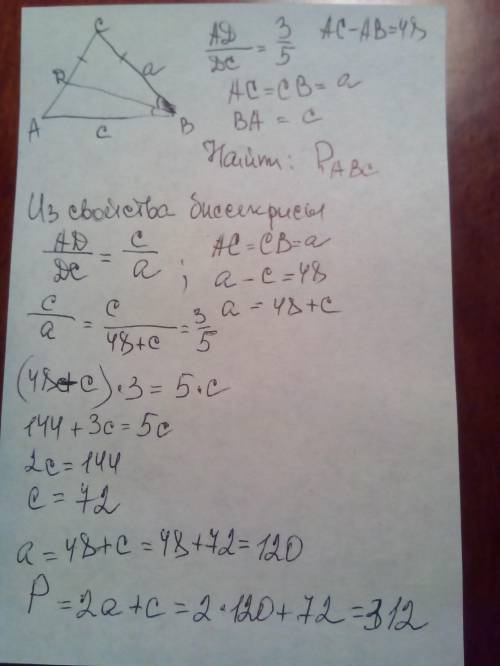 C
D
a
A
c
B
AD/DC = 3/5 AC-AB=48
AC=CB=a
BA = c
Найти: P_ABC
Из свойства биссектрисы
AD/DC = c/a ; AC=CB=a
a-c=48
c/a = c/(48+c) = 3/5 a=48+c
(48+c)·3=5·c
144+3c=5c
2c=144
c=72
a=48+c=48+72=120
P=2a+c=2·120+72=312